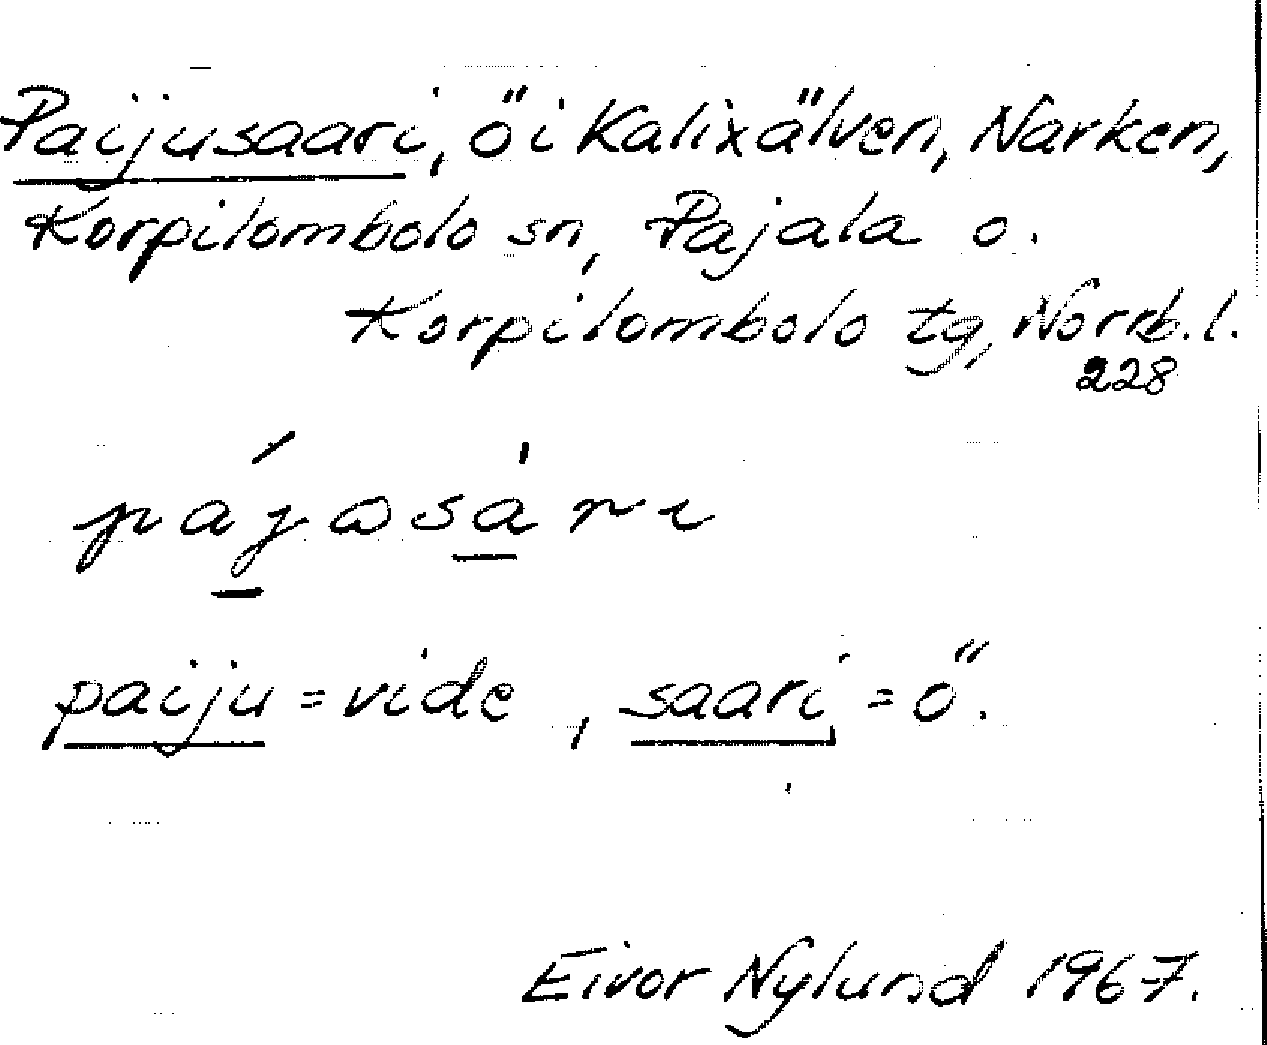 Paijusaari, ö i Kalixälven, Narken,
Korpilombolo sn, Pajala o.
Korpilombolo tg, Norrb. l.
228
paiju = vide, saari = ö.
Eivor Nylund 1967.